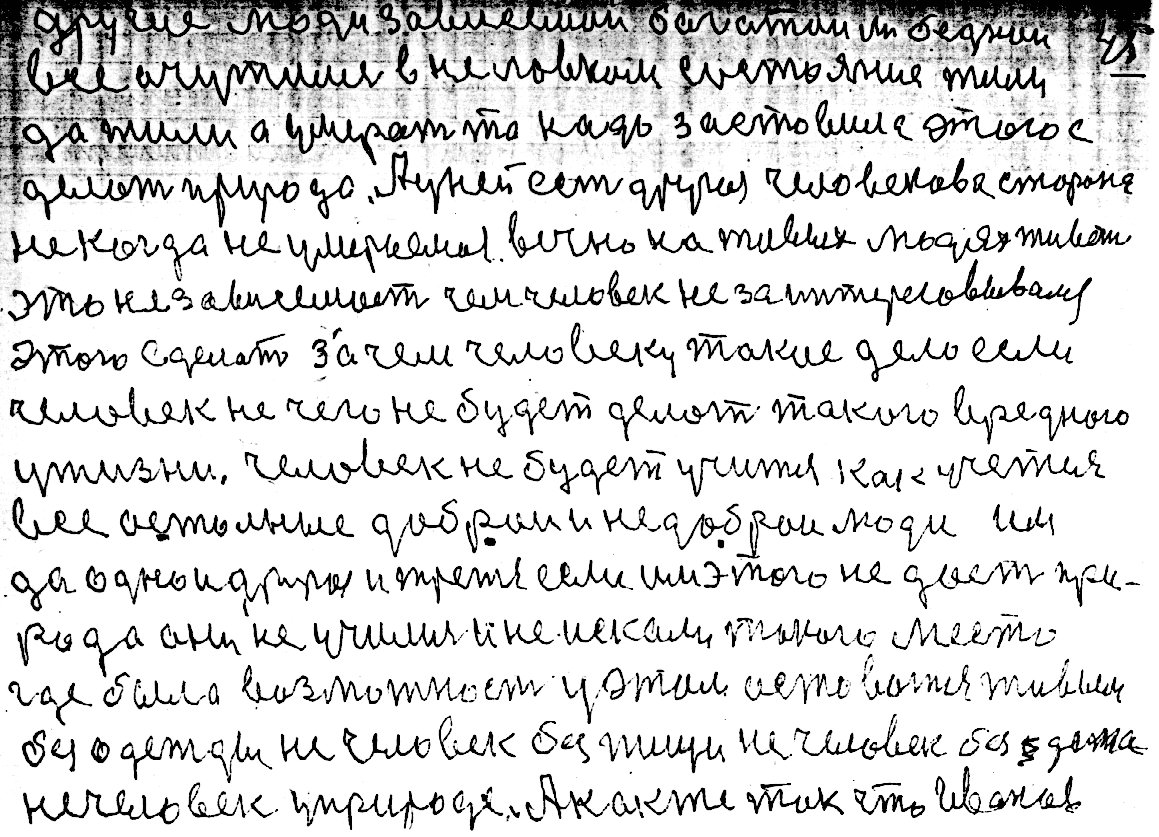 другие люди зависемаи багатаи ли беднаи 45
все очутилис в неловкам состояние жили
да жили а умират то кадь заставила этого с
делат природа. А у ней ест другая человекова сторона
некогда не умираемая вечно на живых людях живет
это независемаст чем человек не заинтересоввывался
этого сделать зачем человеку такие дело если
человек не чего не будет делат такого вредного
ужизни. человек не будет учится как учется
все астольные добраи и недобраи люди им
да одно и другое и третье если им этого не даст при-
рода они не учился и не искали такого место
где была возможност у этом астоватся живым
без одежды не человек без пищи не человек без дома
не человек уприроде. А как же так что Иванов